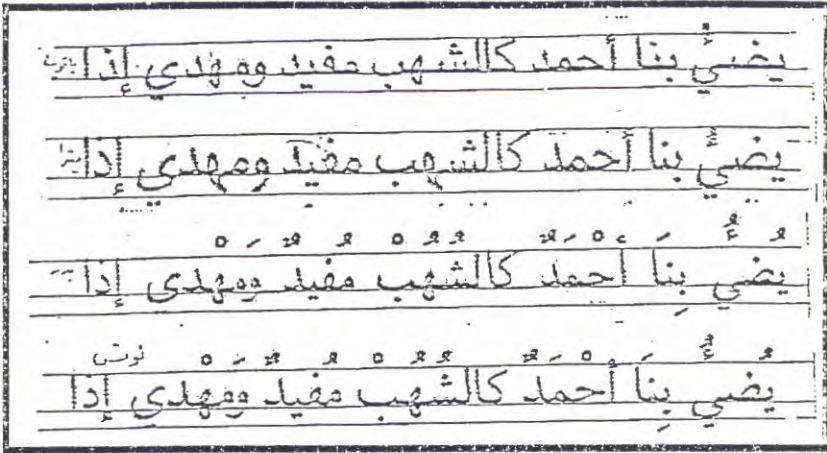 يضيئ بنا أحمد كالشهب مفيد ومهدي إذا
يضيئ بنا أحمد كالشهب مفيد ومهدي إذا
يُضيئ بِنَا أحْمَدٌ كالشُّهْبِ مفيدٌ ومَهْدي إذا
يُضيئ بِنَا أحْمَدٌ كالشُّهْبِ مفيدٌ ومَهْدي إذا